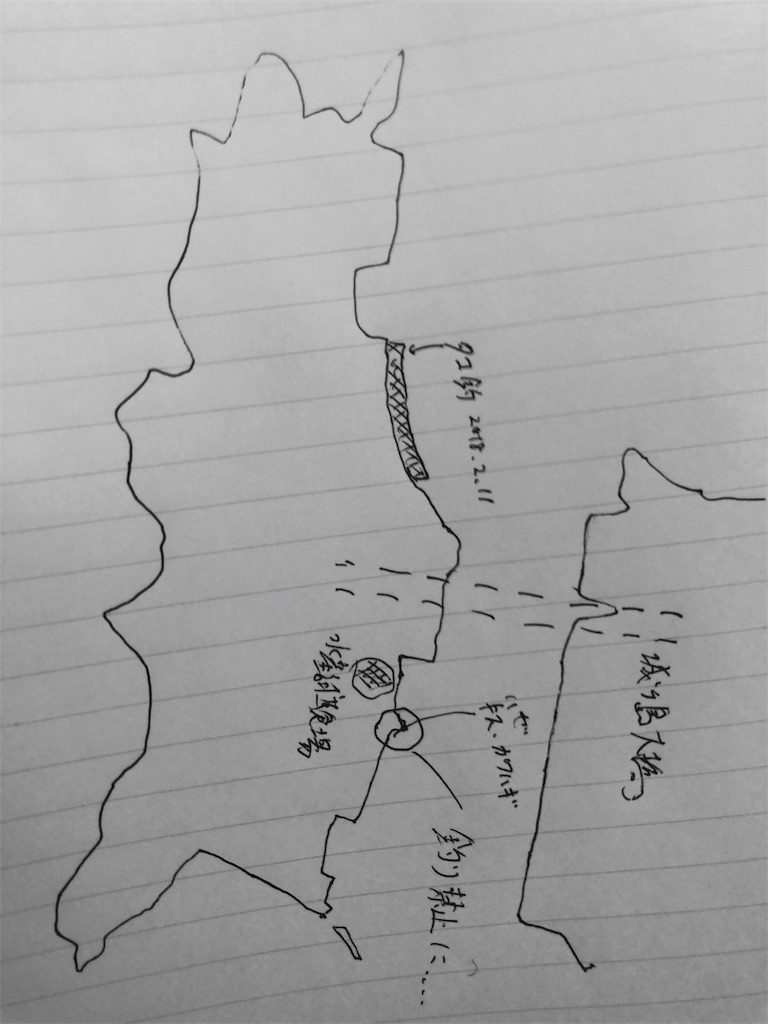 タコ釣 2018.2.11
城ヶ島大橋
水産試験場
ハゼ
キス・カワハギ
釣り禁止に.....